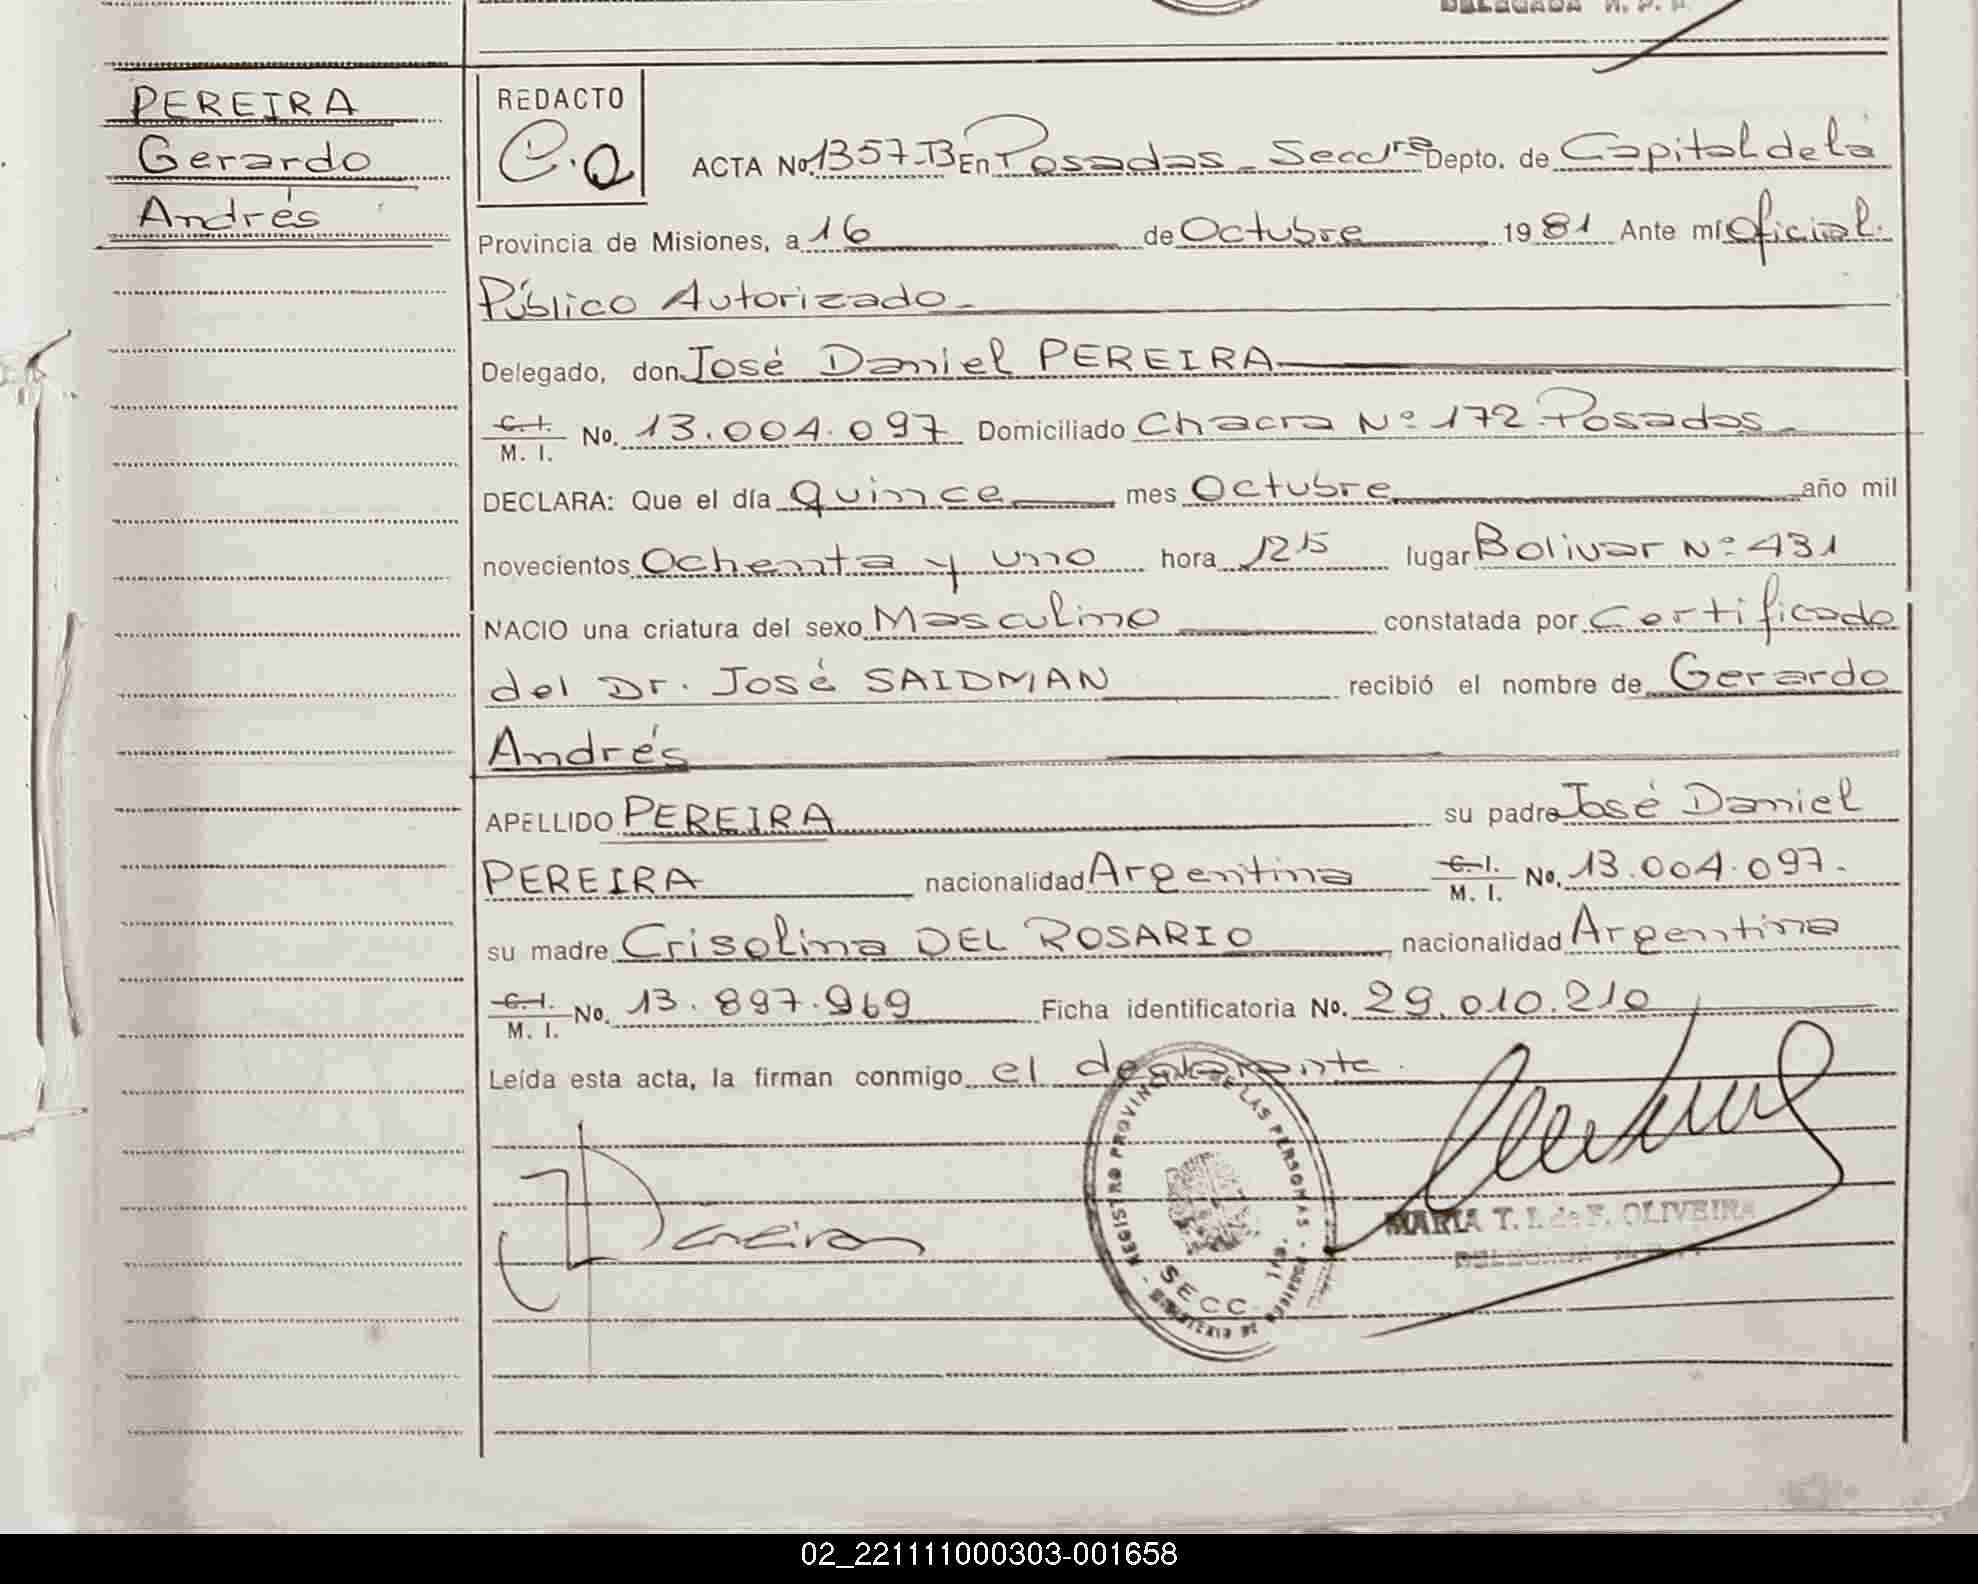 DELEGADA R. P. P.
PEREIRA
Gerardo
Andrés
REDACTO
C.Q
ACTA No. 1357-B En Posadas - Secc 1ra Depto. de Capital de la
Provincia de Misiones, a 16 de Octubre 1981 Ante mí Oficial.
Público Autorizado.-
Delegado, don José Daniel PEREIRA
C. I.
M. I. No. 13.004.097 Domiciliado Chacra Nº 172 - Posadas.-
DECLARA: Que el día quince mes Octubre año mil
novecientos Ochenta y uno hora 12 15 lugar Bolivar Nº 431
NACIO una criatura del sexo Masculino constatada por Certificado
del Dr. José SAIDMAN recibió el nombre de Gerardo
Andrés
APELLIDO PEREIRA su padre José Daniel
PEREIRA nacionalidad Argentina C. I. M. I. No. 13.004.097.
su madre Crisolina DEL ROSARIO nacionalidad Argentina
C. I.
M. I. No. 13.897.969 Ficha identificatoria No. 29.010.210
Leída esta acta, la firman conmigo el declarante.
REGISTRO PROVINCIAL DE LAS PERSONAS
SECC.
JPereira
MARIA T. I. de F. OLIVEIRA
DELEGADA
02_221111000303-001658